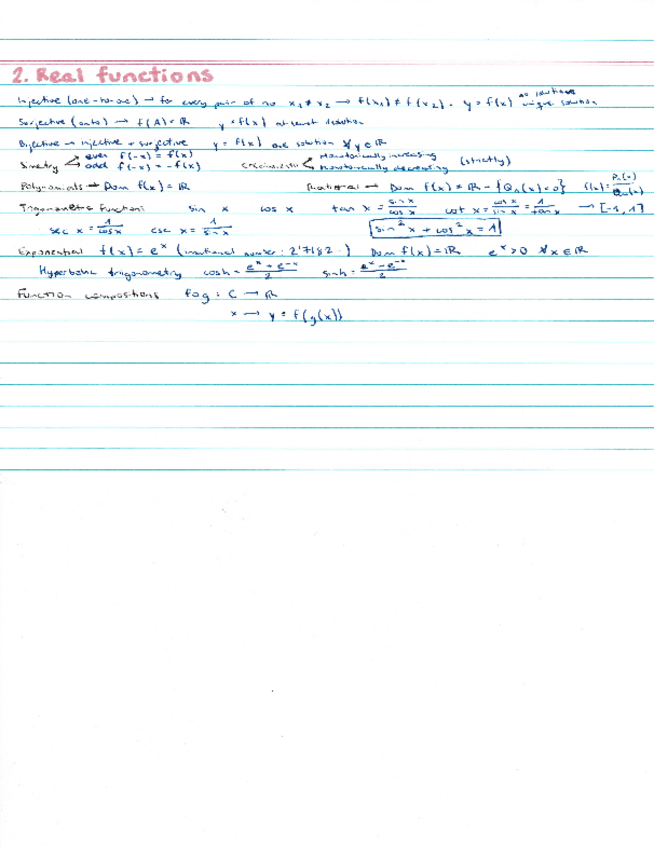 2. Real functions
Injective (one-to-one) → for every pair of no x₁ ≠ x₂ → f(x₁) ≠ f(x₂). y = f(x) no solution unique solution
Surjective (onto) → f(A) = ℝ y = f(x) at least 1 solution
Bijective → injective + surjective y = f(x) one solution ∀ y ∈ ℝ
Simetry → even f(-x) = f(x) → odd f(-x) = -f(x) Crecimiento < Monotonically increasing Monotonically decreasing (strictly)
Polynomials → Dom f(x) = ℝ Rational → Dom f(x) ≠ ℝ - {Qₙ(x) = 0} f(x) = Pₙ(x)/Qₘ(x)
Trigonometric functions sin x cos x tan x = sin x/cos x cot x = cos x/sin x = 1/tan x → [-1, 1]
sec x = 1/cos x csc x = 1/sin x sin² x + cos² x = 1
Exponential f(x) = eˣ (irrational number: 2'7182..) Dom f(x) = ℝ eˣ > 0 ∀ x ∈ ℝ
Hyperbolic trigonometry cosh = eˣ + e⁻ˣ/2 sinh = eˣ - e⁻ˣ/2
Function compositions fog : C → ℝ
x → y = f(g(x))